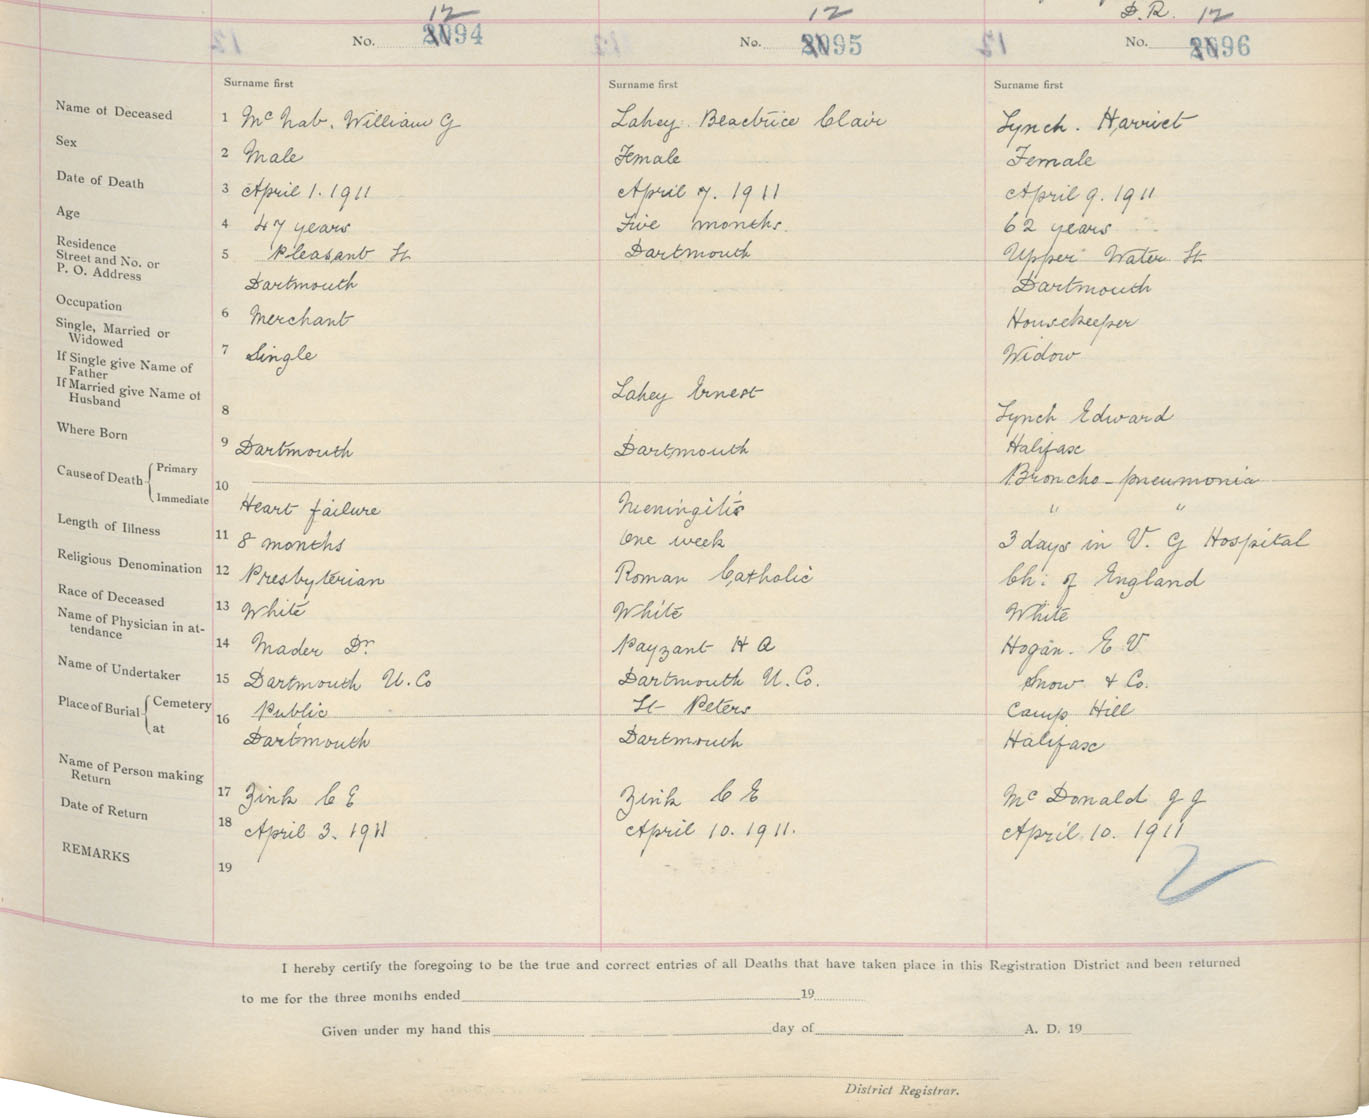 D.R. 12
12 12
No. 2094 No. 2095 No. 2096
Surname first Surname first Surname first
Name of Deceased 1 Mc Nab. William G Lahey. Beactrice Clair Lynch. Harriet
Sex 2 Male Female Female
Date of Death 3 April 1. 1911 April 7. 1911 April 9. 1911
Age 4 47 years Five months. 62 years
Residence
Street and No. or 5 Pleasant St Dartmouth Upper Water St
P. O. Address Dartmouth Dartmouth
Occupation 6 Merchant Housekeeper
Single, Married or
Widowed 7 Single Widow
If Single give Name of
Father
If Married give Name of Lahey Ernest
Husband 8 Lynch Edward
Where Born 9 Dartmouth Dartmouth Halifax
Cause of Death Primary 10 Broncho-pneumonia
Immediate Heart failure Meningitis " "
Length of Illness 11 8 months One week 3 days in V. G Hospital
Religious Denomination 12 Presbyterian Roman Catholic Ch: of England
Race of Deceased 13 White White White
Name of Physician in at-
tendance 14 Mader Dr. Payzant H A Hogan. E V
Name of Undertaker 15 Dartmouth U. Co Dartmouth U. Co. Snow & Co.
Place of Burial Cemetery 16 Public St Peters Camp Hill
at Dartmouth Dartmouth Halifax
Name of Person making
Return 17 Zink C E Zink C E Mc Donald J J
Date of Return 18 April 3. 1911 April 10. 1911. April 10. 1911
REMARKS 19
I hereby certify the foregoing to be the true and correct entries of all Deaths that have taken place in this Registration District and been returned
to me for the three months ended 19
Given under my hand this day of A. D. 19
District Registrar.